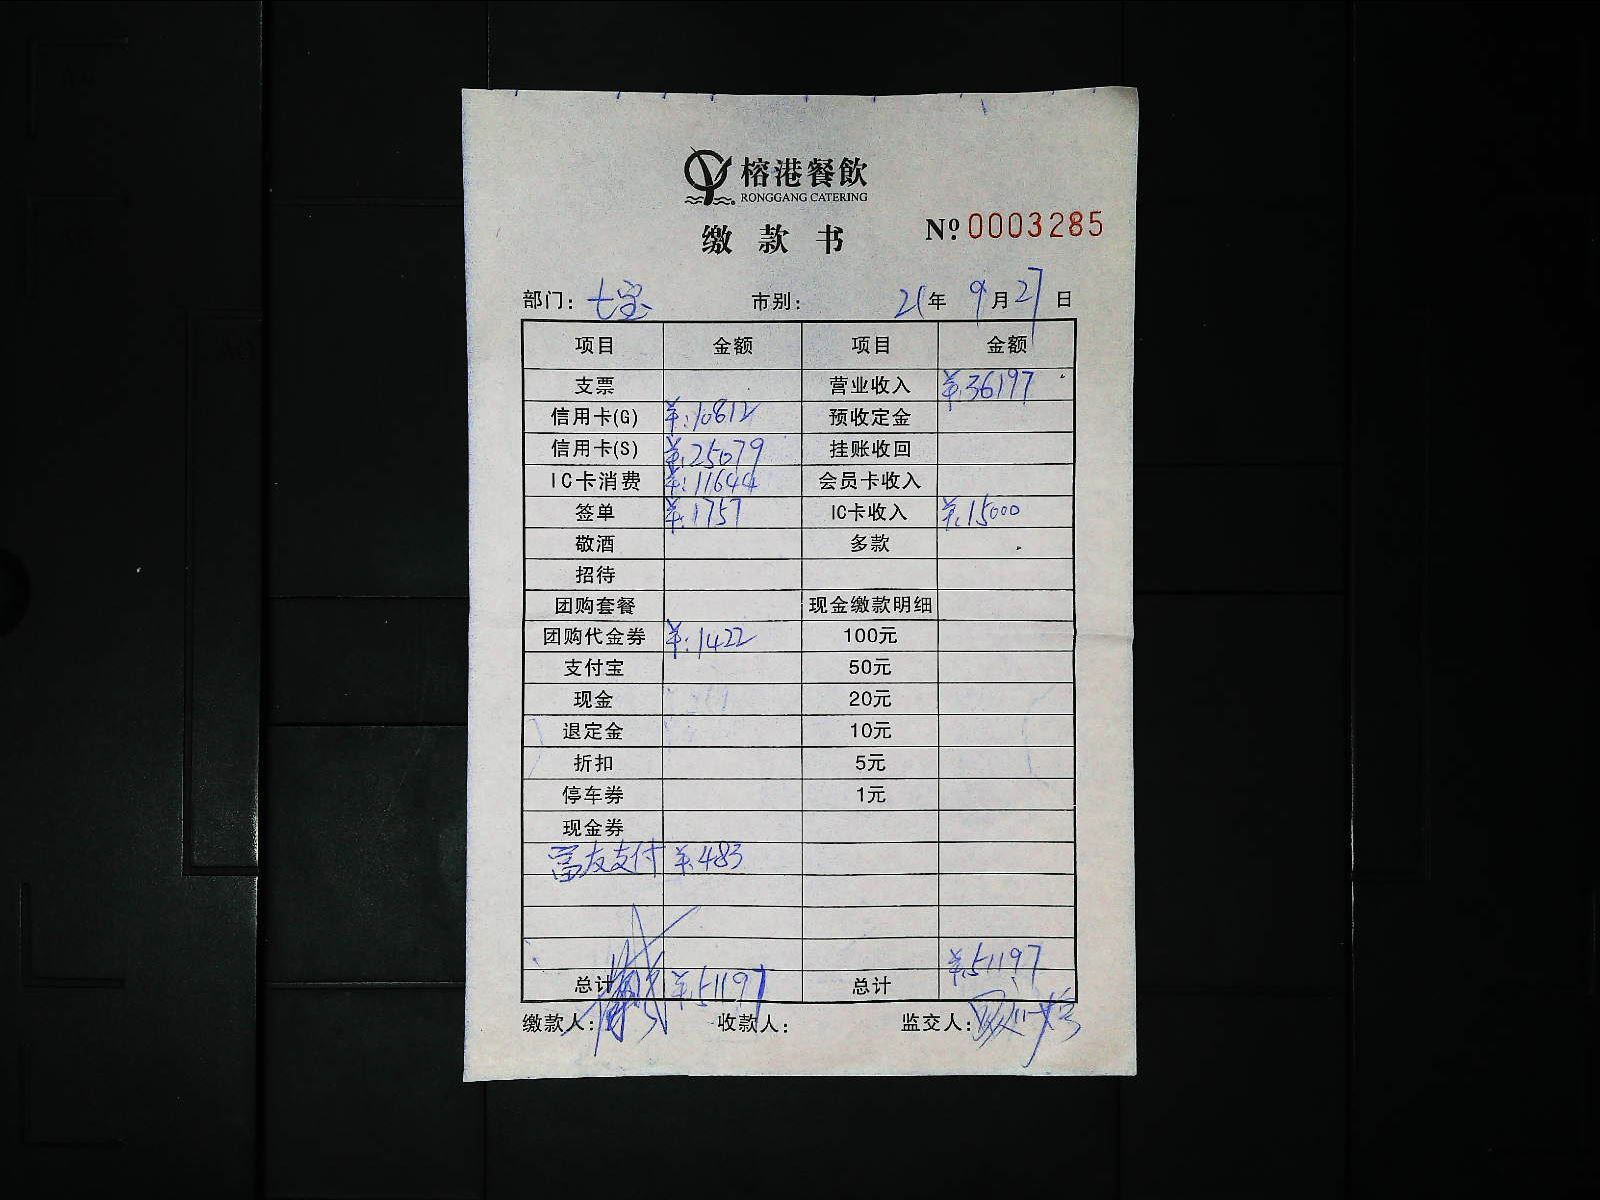 榕港餐飲
RONGGANG CATERING
缴款书
№ 0003285
部门：七宝 市别： 21年 9月27日
项目 金额 项目 金额
支票 营业收入 ¥:36197
信用卡(G) ¥:10812 预收定金
信用卡(S) ¥:25079 挂账收回
IC卡消费 ¥:11644 会员卡收入
签单 ¥:1757 IC卡收入 ¥:15000
敬酒 多款
招待
团购套餐 现金缴款明细
团购代金券 ¥:1422 100元
支付宝 50元
现金 20元
退定金 10元
折扣 5元
停车券 1元
现金券
富友支付 ¥:483
总计 ¥:51197 总计 ¥:51197
缴款人： 收款人： 监交人：